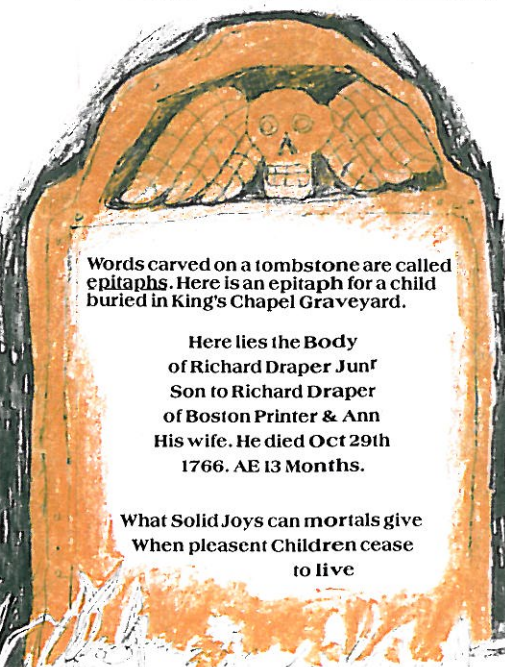 Words carved on a tombstone are called
epitaphs. Here is an epitaph for a child
buried in King's Chapel Graveyard.
Here lies the Body
of Richard Draper Junr
Son to Richard Draper
of Boston Printer & Ann
His wife. He died Oct 29th
1766. AE 13 Months.
What Solid Joys can mortals give
When pleasent Children cease
to live